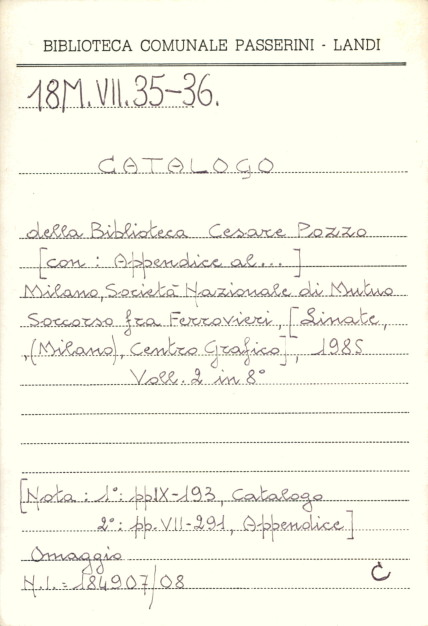 BIBLIOTECA COMUNALE PASSERINI - LANDI
18M.VII.35-36.
CATALOGO
della Biblioteca Cesare Pozzo
[con: Appendice al...]
Milano, Società Nazionale di Mutuo
Soccorso fra Ferrovieri, [Linate,
,(Milano), Centro Grafico], 1985
Voll. 2 in 8°
[Nota: 1°: ppIX-193, Catalogo
2°: pp. VII-291, Appendice]
Omaggio
N.I.= 184907/08
C